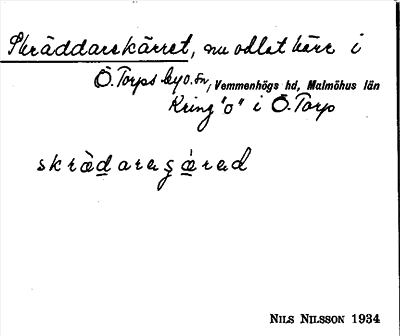 Skräddarekärret, nu odlat kärr i
Ö. Torps by o. sn, Vemmenhögs hd, Malmöhus län
Kring "o" i Ö. Torp
skræ̀dareʒǽred
NILS NILSSON 1934